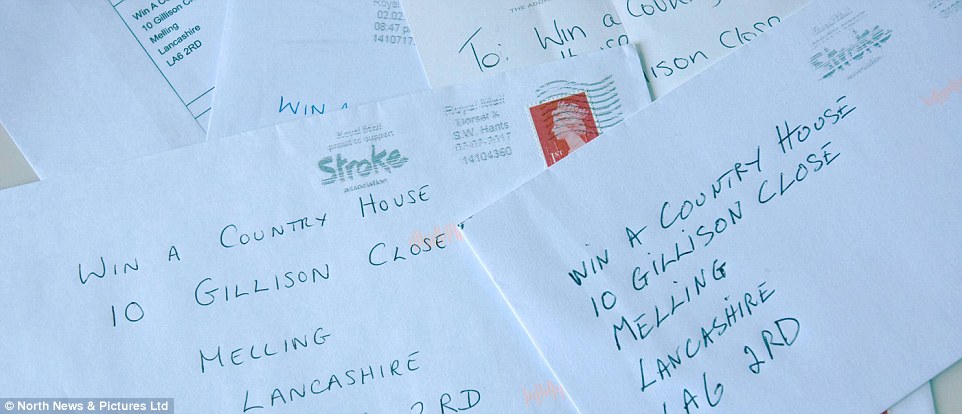 Win A Co
10 Gillison C
Melling
Lancashire
LA6 2RD
Royal
02.02
08:47 p
1410717
WIN A
THE ADD
To: Win a Country
ison Close
Royal Mail
proud to support
Stroke
association
Royal Mail
Dorset &
S.W. Hants
02-02-2017
14104360
1ST
WIN A COUNTRY HOUSE
10 GILLISON CLOSE
MELLING
LANCASHIRE
2RD
WIN A COUNTRY HOUSE
10 GILLISON CLOSE
MELLING
LANCASHIRE
LA6 2RD
© North News & Pictures Ltd